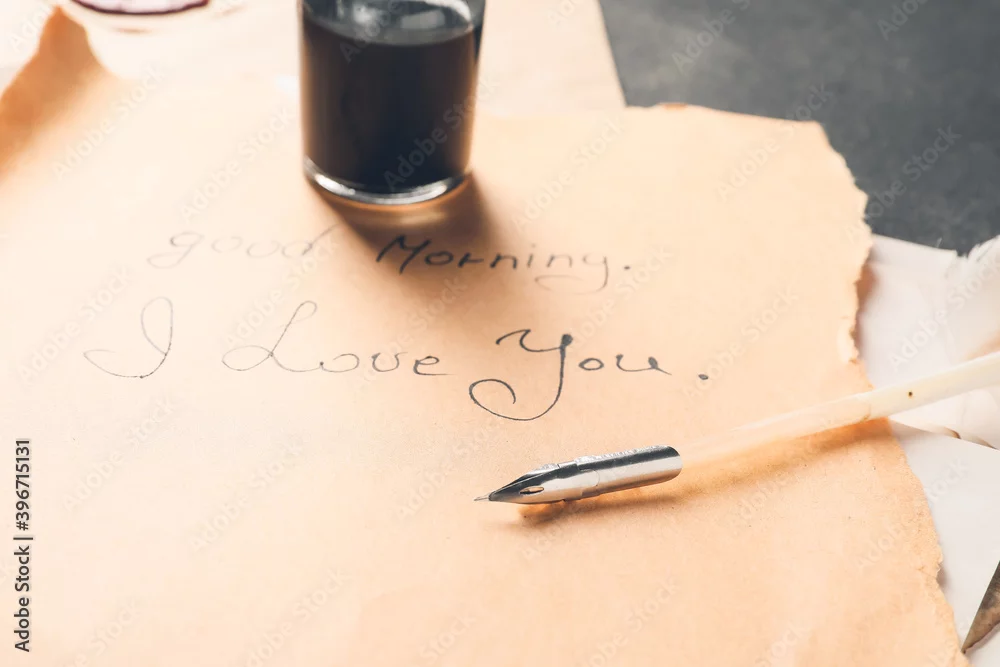 good Morning.
I Love You.
Adobe Stock | #396715131